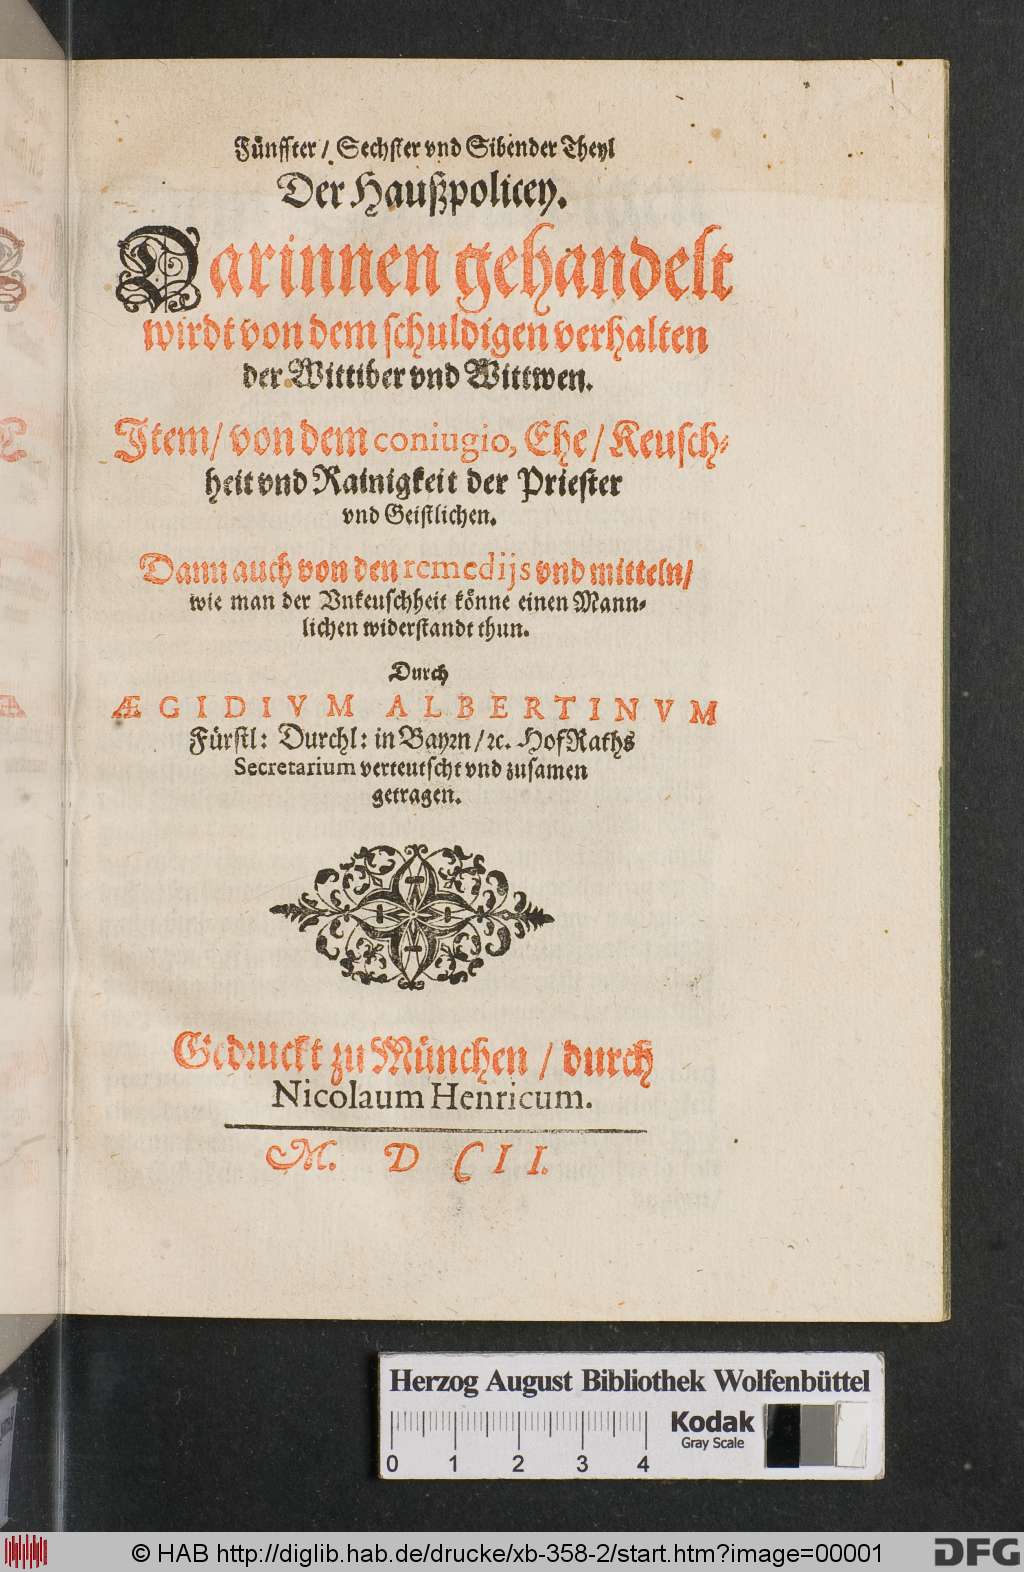 Fünffter / Sechster vnd Sibender Theyl
Der Haußpolicey.
Darinnen gehandelt
wirdt von dem schuldigen verhalten
der Wittiber vnd Wittwen.
Item / von dem coniugio, Ehe / Keusch-
heit vnd Rainigkeit der Priester
vnd Geistlichen.
Dann auch von den remedijs vnd mitteln /
wie man der Vnkeuschheit könne einen Mann-
lichen widerstandt thun.
Durch
ÆGIDIVM ALBERTINVM
Fürstl: Durchl: in Bayrn / ꝛc. HofRaths
Secretarium verteutscht vnd zusamen
getragen.
Gedruckt zu München / durch
Nicolaum Henricum.
M. D CII.
Herzog August Bibliothek Wolfenbüttel
Kodak
Gray Scale
0 1 2 3 4
© HAB http://diglib.hab.de/drucke/xb-358-2/start.htm?image=00001
DFG